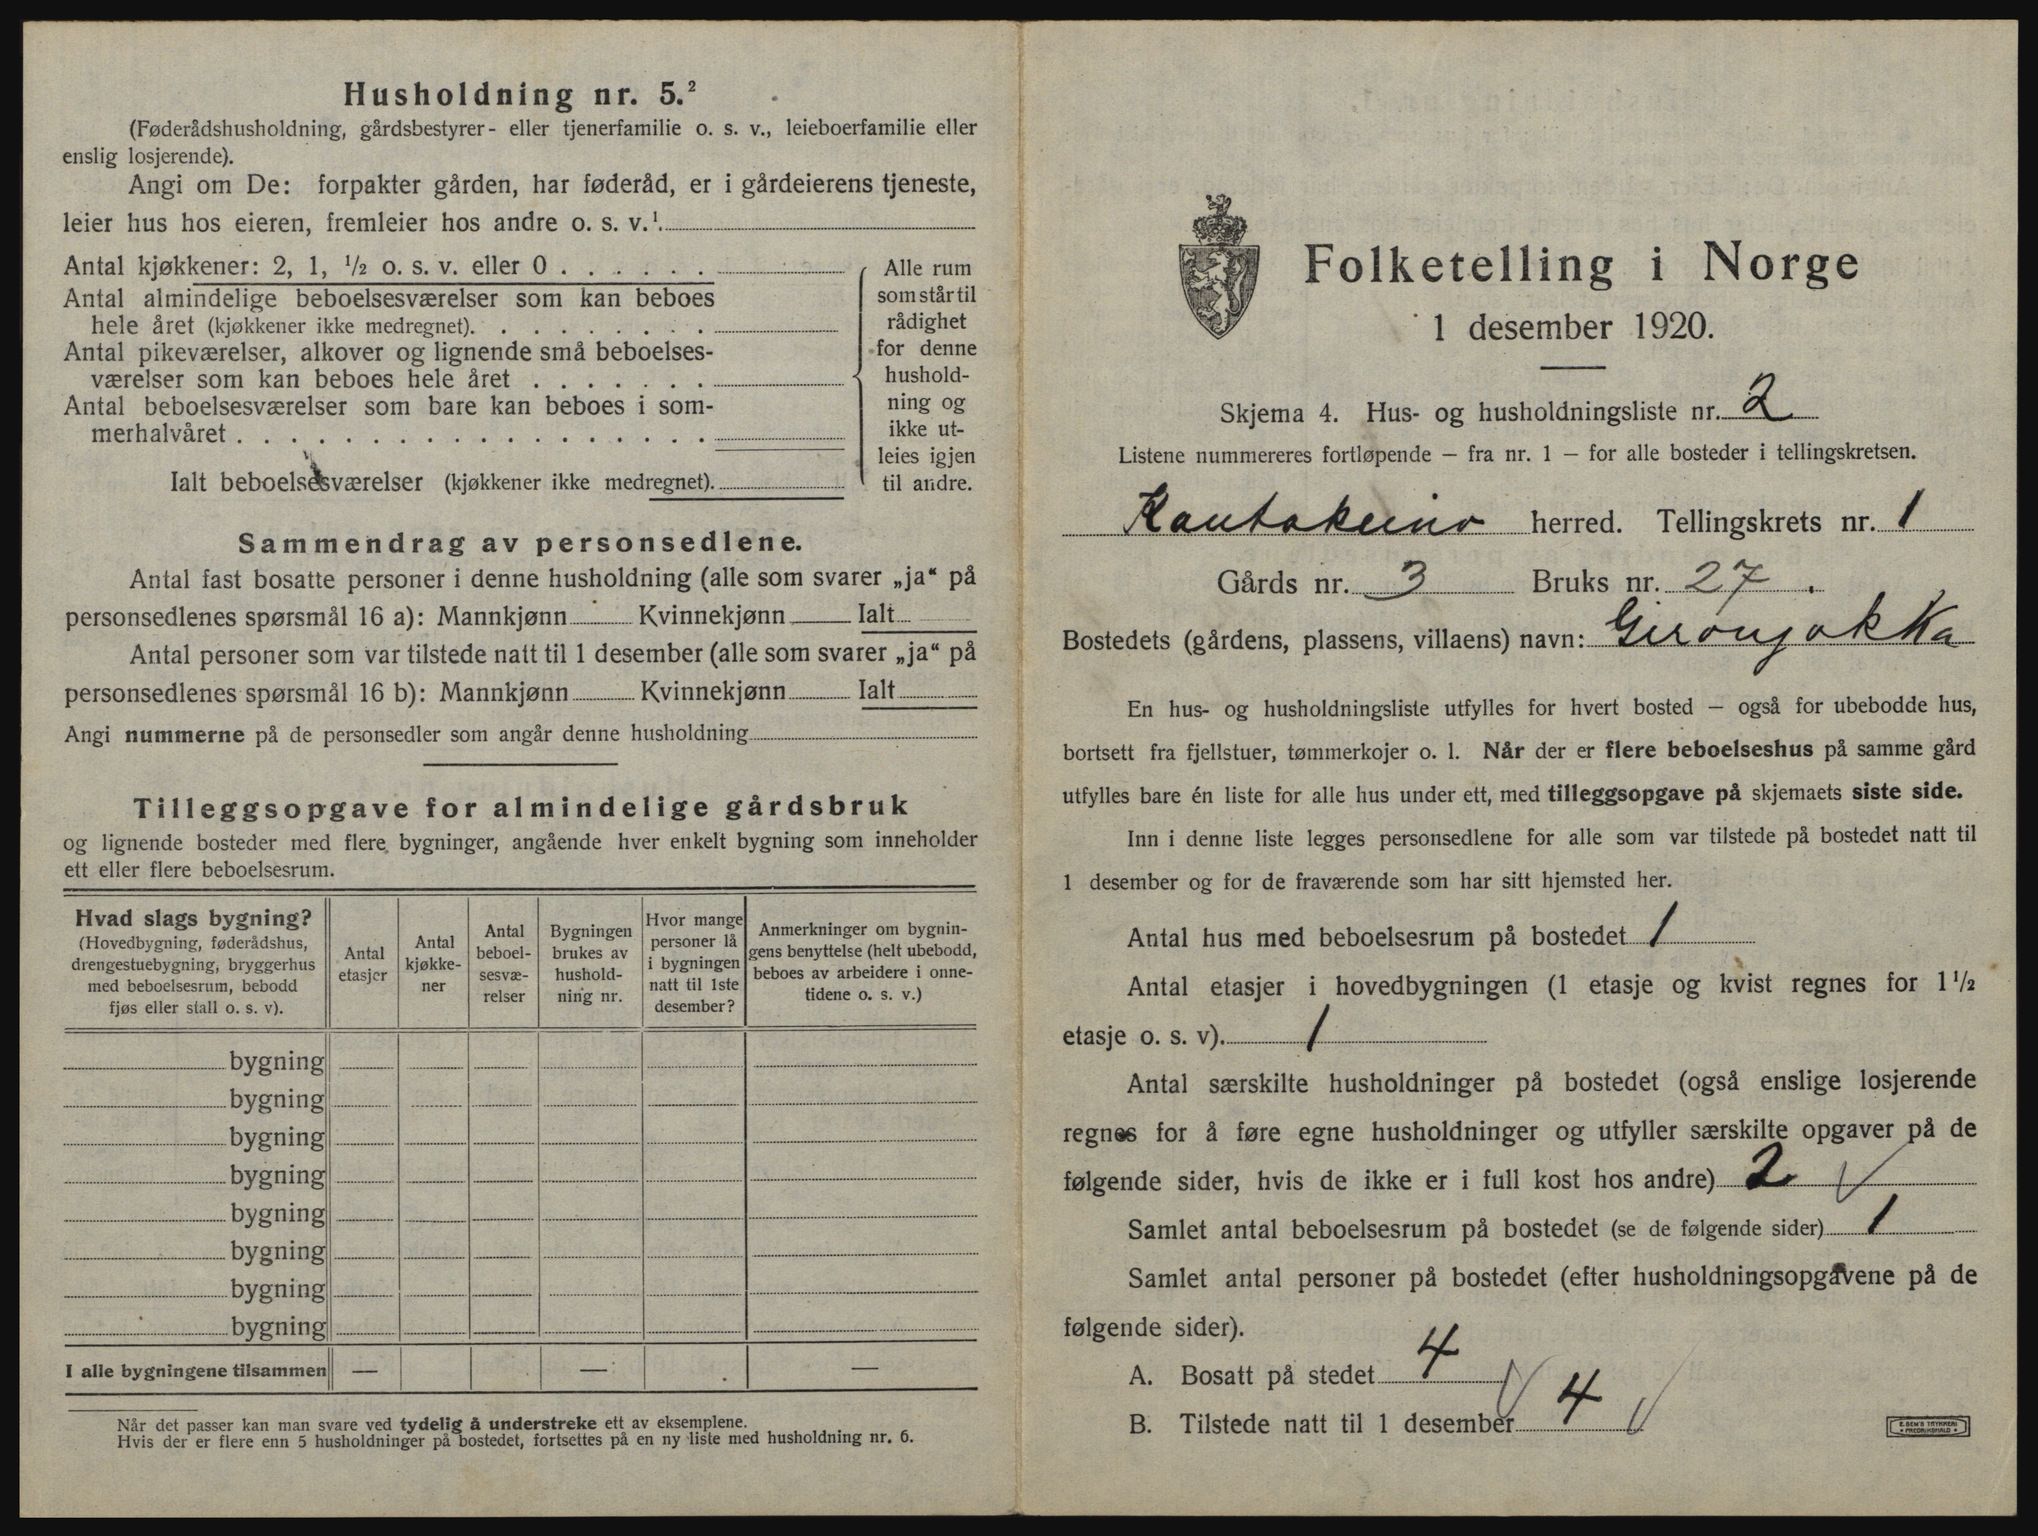 Husholdning nr. 5.²
(Føderådshusholdning, gårdsbestyrer- eller tjenerfamilie o. s. v., leieboerfamilie eller
enslig losjerende).
Angi om De: forpakter gården, har føderåd, er i gårdeierens tjeneste,
leier hus hos eieren, fremleier hos andre o. s. v.¹
Antal kjøkkener: 2, 1, ½ o. s. v. eller 0 . . . . . .
Antal almindelige beboelsesværelser som kan beboes
hele året (kjøkkener ikke medregnet). . . . . . . . .
Antal pikeværelser, alkover og lignende små beboelses-
værelser som kan beboes hele året . . . . . . .
Antal beboelsesværelser som bare kan beboes i som-
merhalvåret . . . . . . . . . . . . . . . . . .
Ialt beboelsesværelser (kjøkkener ikke medregnet).
Alle rum
som står til
rådighet
for denne
hushold-
ning og
ikke ut-
leies igjen
til andre.
Sammendrag av personsedlene.
Antal fast bosatte personer i denne husholdning (alle som svarer „ja“ på
personsedlenes spørsmål 16 a): Mannkjønn Kvinnekjønn Ialt
Antal personer som var tilstede natt til 1 desember (alle som svarer „ja“ på
personsedlenes spørsmål 16 b): Mannkjønn Kvinnekjønn Ialt
Angi nummerne på de personsedler som angår denne husholdning
Tilleggsopgave for almindelige gårdsbruk
og lignende bosteder med flere bygninger, angående hver enkelt bygning som inneholder
ett eller flere beboelsesrum.
Hvad slags bygning?
(Hovedbygning, føderådshus,
drengestuebygning, bryggerhus
med beboelsesrum, bebodd
fjøs eller stall o. s. v).
Antal
etasjer
Antal
kjøkke-
ner
Antal
beboel-
sesvæ-
relser
Bygningen
brukes av
hushold-
ning nr.
Hvor mange
personer lå
i bygningen
natt til 1ste
desember?
Anmerkninger om bygnin-
gens benyttelse (helt ubebodd,
beboes av arbeidere i onne-
tidene o. s. v.)
bygning
bygning
bygning
bygning
bygning
bygning
bygning
bygning
I alle bygningene tilsammen — — —
Når det passer kan man svare ved tydelig å understreke ett av eksemplene.
Hvis der er flere enn 5 husholdninger på bostedet, fortsettes på en ny liste med husholdning nr. 6.
Folketelling i Norge
1 desember 1920.
Skjema 4. Hus- og husholdningsliste nr. 2
Listene nummereres fortløpende — fra nr. 1 — for alle bosteder i tellingskretsen.
Kautokeino herred. Tellingskrets nr. 1
Gårds nr. 3 Bruks nr. 27.
Bostedets (gårdens, plassens, villaens) navn: Gironjokka
En hus- og husholdningsliste utfylles for hvert bosted — også for ubebodde hus,
bortsett fra fjellstuer, tømmerkojer o. l. Når der er flere beboelseshus på samme gård
utfylles bare én liste for alle hus under ett, med tilleggsopgave på skjemaets siste side.
Inn i denne liste legges personsedlene for alle som var tilstede på bostedet natt til
1 desember og for de fraværende som har sitt hjemsted her.
Antal hus med beboelsesrum på bostedet 1
Antal etasjer i hovedbygningen (1 etasje og kvist regnes for 1½
etasje o. s. v). 1
Antal særskilte husholdninger på bostedet (også enslige losjerende
regnes for å føre egne husholdninger og utfyller særskilte opgaver på de
følgende sider, hvis de ikke er i full kost hos andre) 2 √
Samlet antal beboelsesrum på bostedet (se de følgende sider) 1
Samlet antal personer på bostedet (efter husholdningsopgavene på de
følgende sider).
A. Bosatt på stedet 4 √
B. Tilstede natt til 1 desember 4 √
E. SEM'S TRYKKERI
FREDRIKSHALD